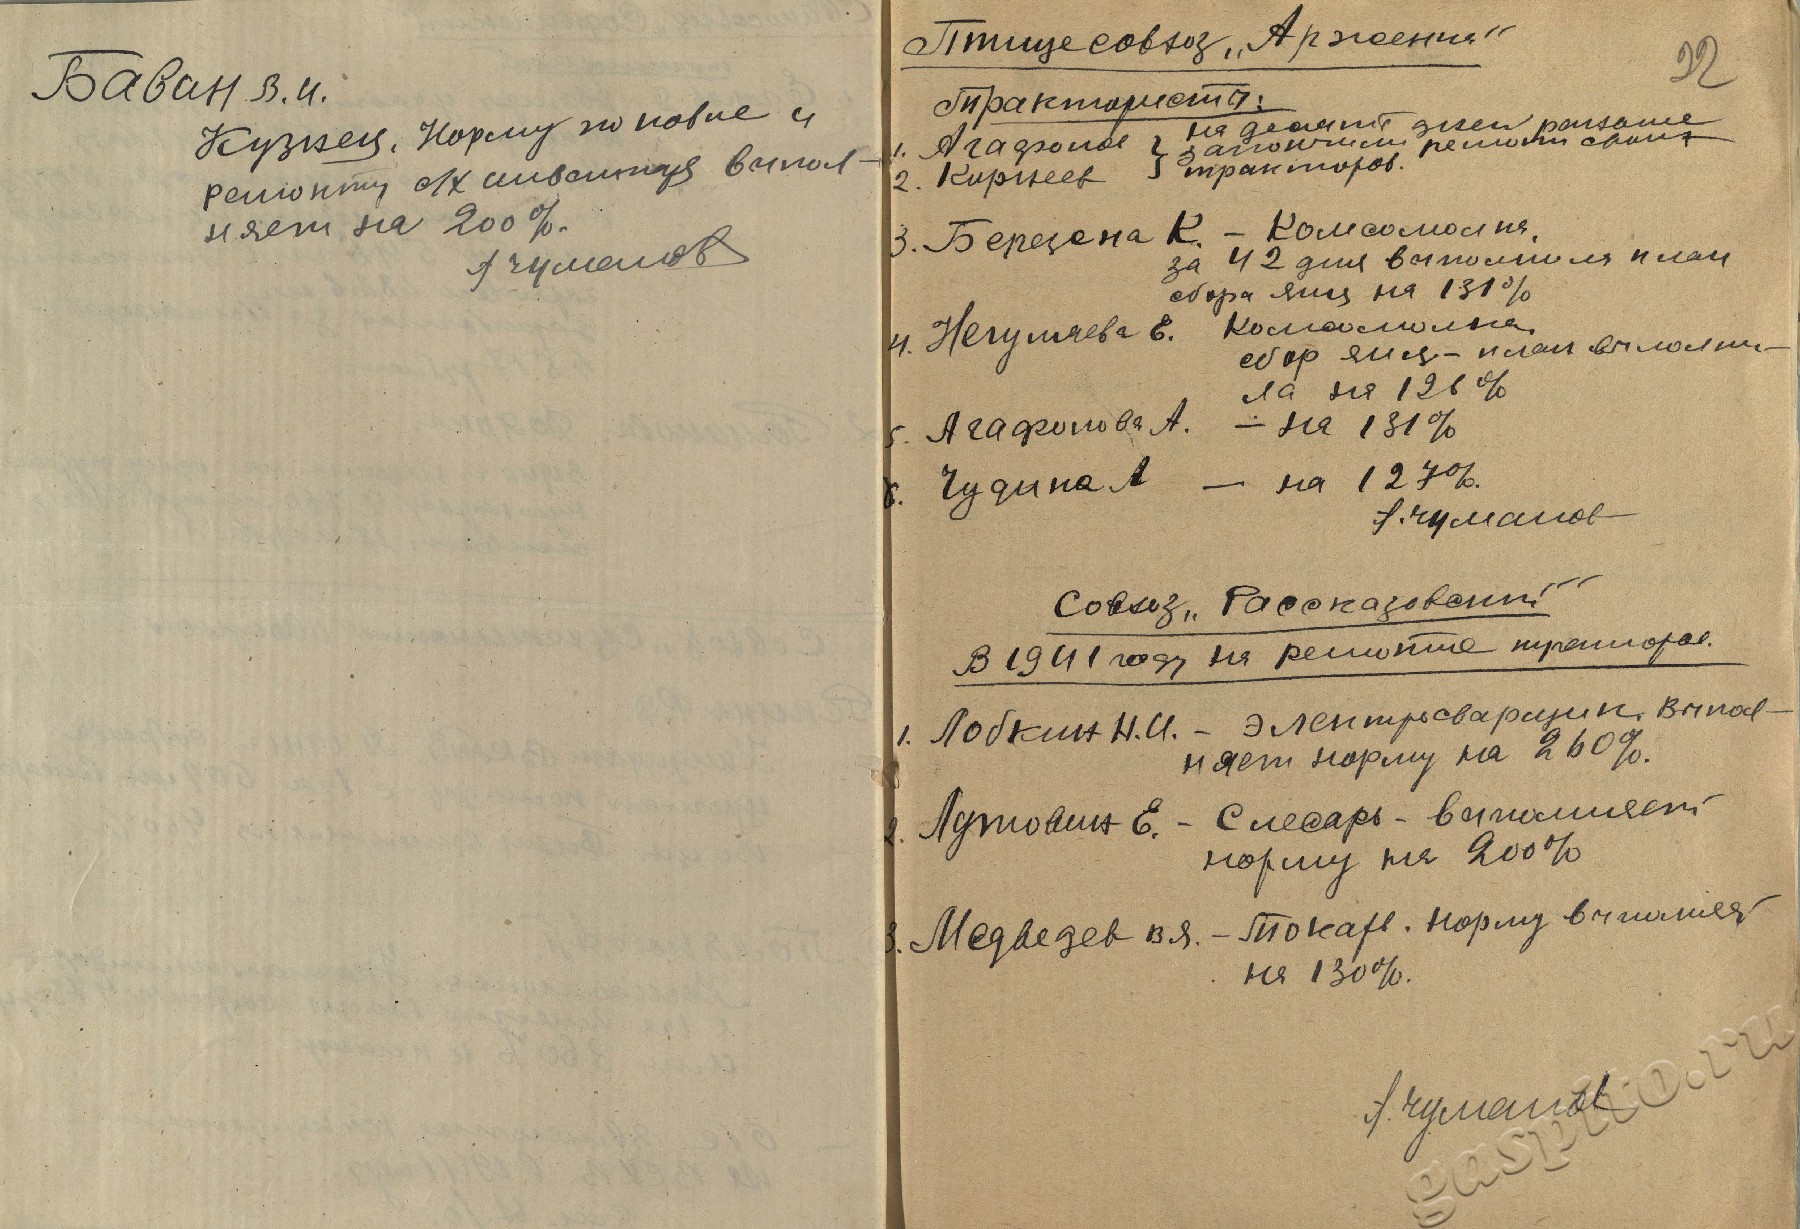 Баван В.И.
Кузнец. Норму по ковке и
ремонту с/х инвентаря выпол-
няет на 200%.
А Чуманов
22
Птицесовхоз „Арженка“
Трактористы:
1. Агафонов } на десять дней раньше
закончили ремонт своих
2. Корнеев } тракторов.
3. Березена К. – Комсомолка,
за 42 дня выполнила план
сбора яиц на 131%
4. Негуляева Е. Комсомолка,
сбор яиц – план выполни-
ла на 126%
5. Агафонова А. – на 131%
6. Чудина А – на 127%.
А. Чуманов
Совхоз „Рассказовский“
В 1941 году на ремонте тракторов.
1. Лобкин Н.И. – Электросварщик. Выпол-
няет норму на 260%.
2. Лутовин Е. – Слесарь – выполняет
норму на 200%
3. Медведев В.Я. – Токарь. Норму выполняет
на 130%.
А. Чуманов
gaspito.ru